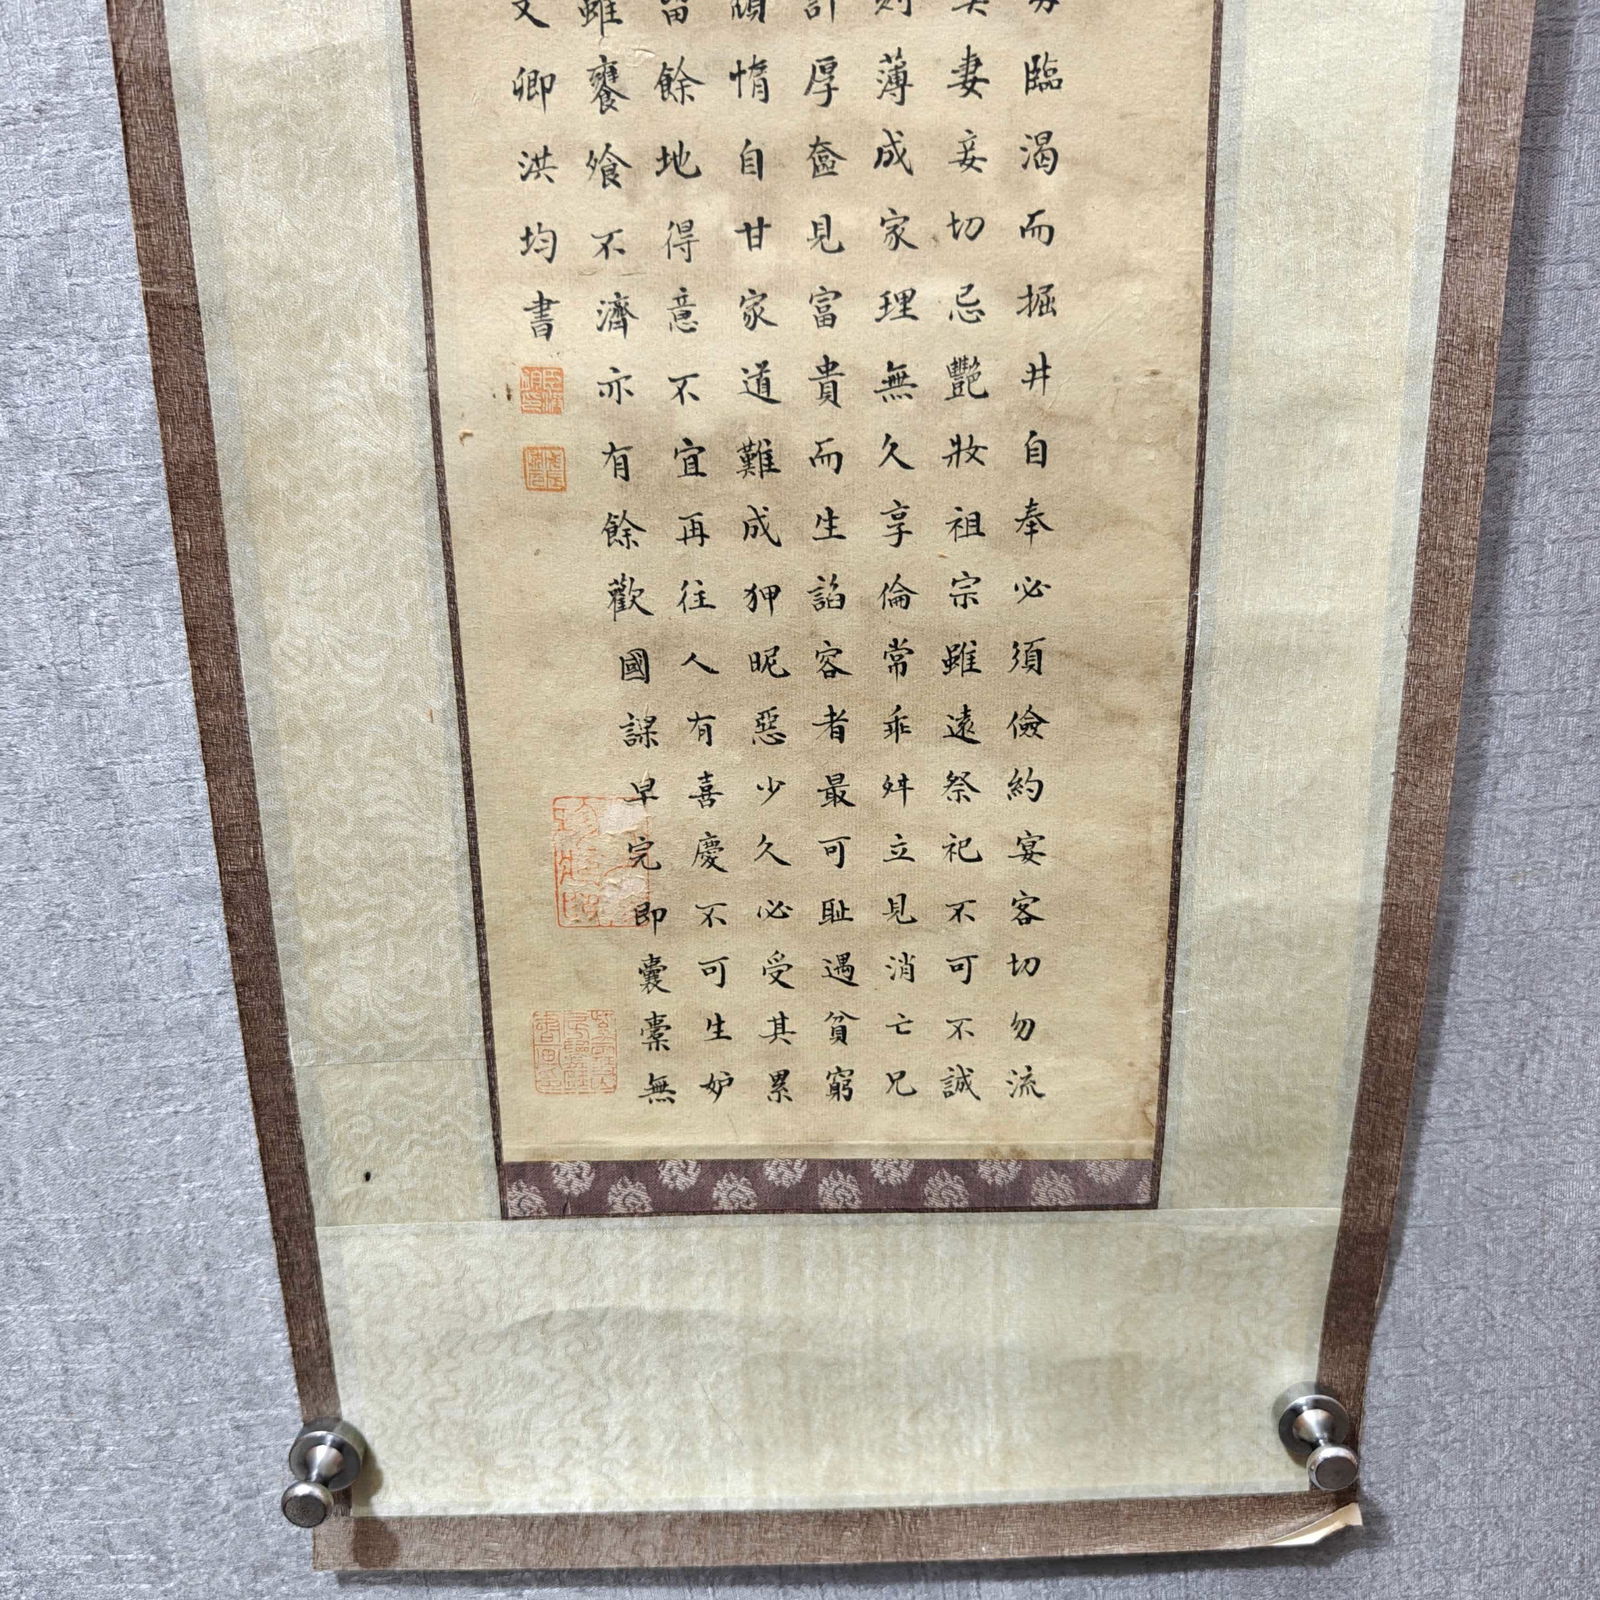 臨渴而掘井自奉必須儉約宴客切勿流
美妻妾切忌艷妝祖宗雖遠祭祀不可不誠
則薄成家理無久享倫常乖舛立見消亡兄
計厚奩見富貴而生諂容者最可耻遇貧窮
頑惰自甘家道難成狎昵惡少久必受其累
留餘地得意不宜再往人有喜慶不可生妒
雖饔飱不濟亦有餘歡國課早完即囊橐無
文卿洪均書